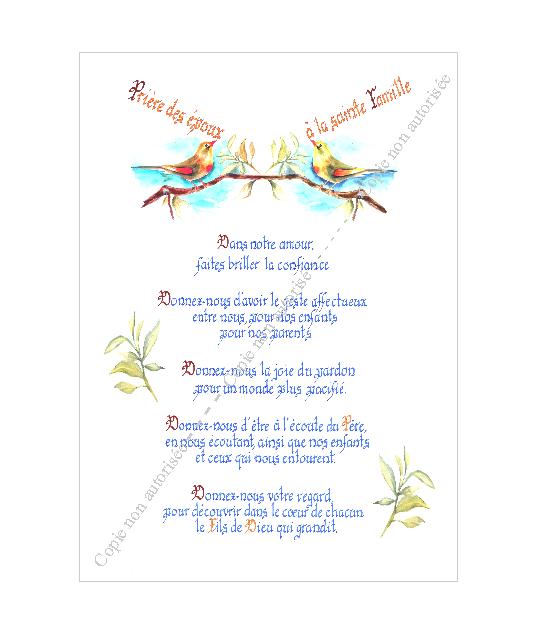 Prière des époux
à la sainte Famille
Dans notre amour,
faites briller la confiance
Donnez-nous d'avoir le geste affectueux
entre nous, pour nos enfants
pour nos parents
Donnez-nous la joie du pardon
pour un monde plus pacifié.
Donnez-nous d'être à l'écoute du Père,
en nous écoutant, ainsi que nos enfants
et ceux qui nous entourent.
Donnez-nous votre regard
pour découvrir dans le cœur de chacun
le Fils de Dieu qui grandit.
Copie non autorisée ---- Copie non autorisée ---- Copie non autorisée